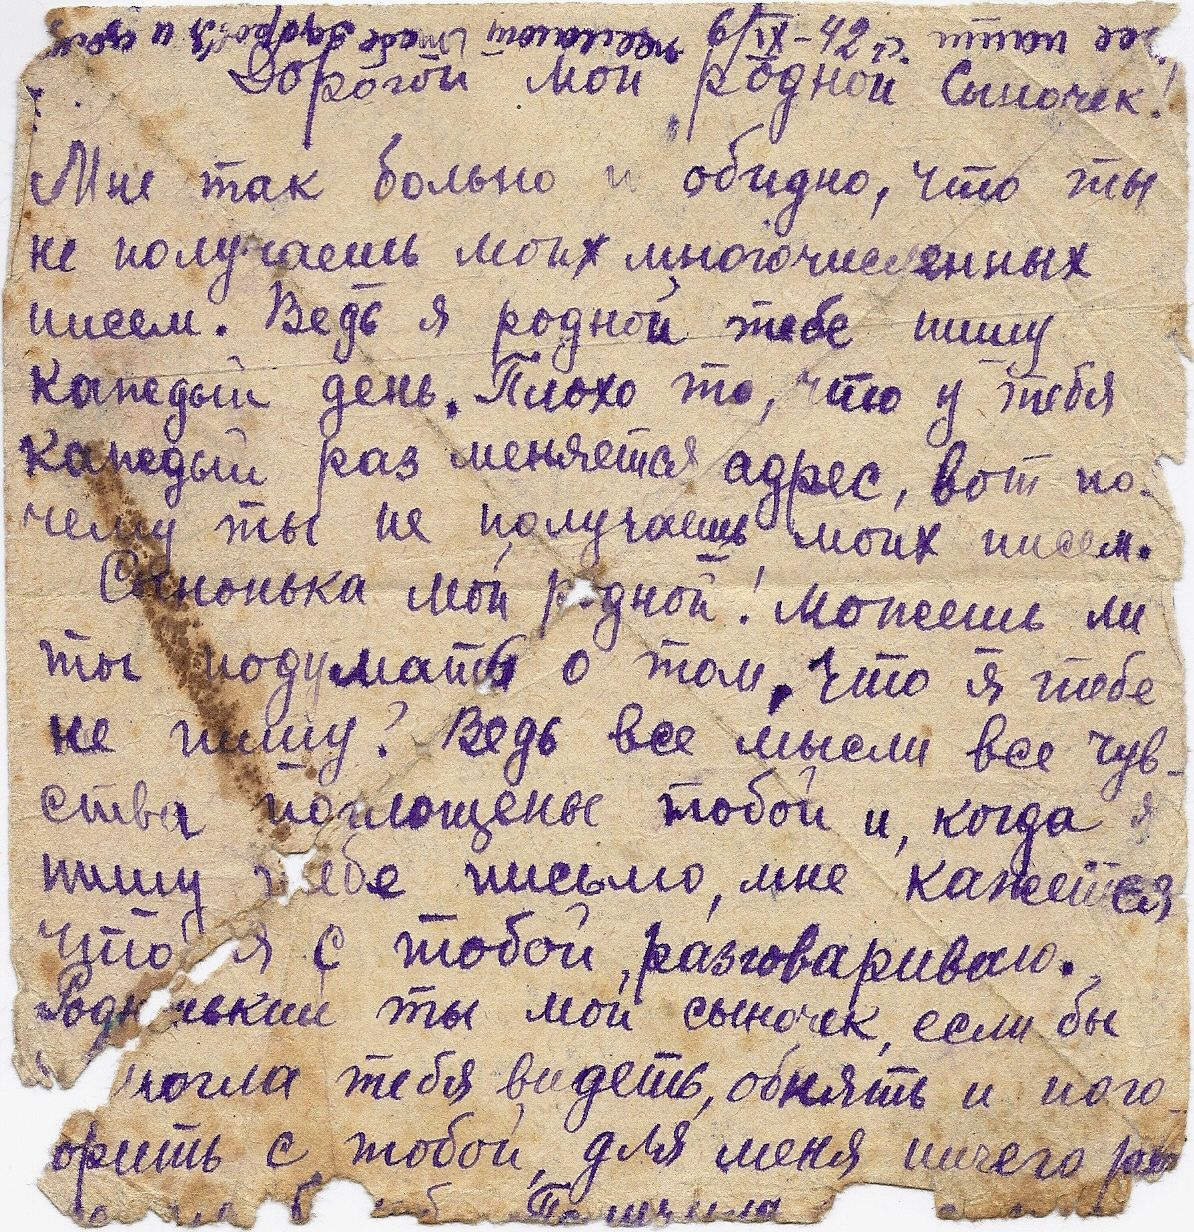 6/IX-42 г.
все наши желают тебе здоровья и
Дорогой мой родной Сыночек!
Мне так больно и обидно, что ты
не получаешь моих многочисленных
писем. Ведь я родной тебе пишу
каждый день. Плохо то, что у тебя
каждый раз меняется адрес, вот по-
чему ты не получаешь моих писем.
Сынонька мой родной! Можешь ли
ты подумать о том, что я тебе
не пишу? Ведь все мысли все чув-
ства поглощены тобой и, когда я
пишу тебе письмо, мне кажется
что я с тобой разговариваю.
Родненький ты мой сыночек, если бы
могла тебя видеть, обнять и пого-
орить с тобой, для меня ничего